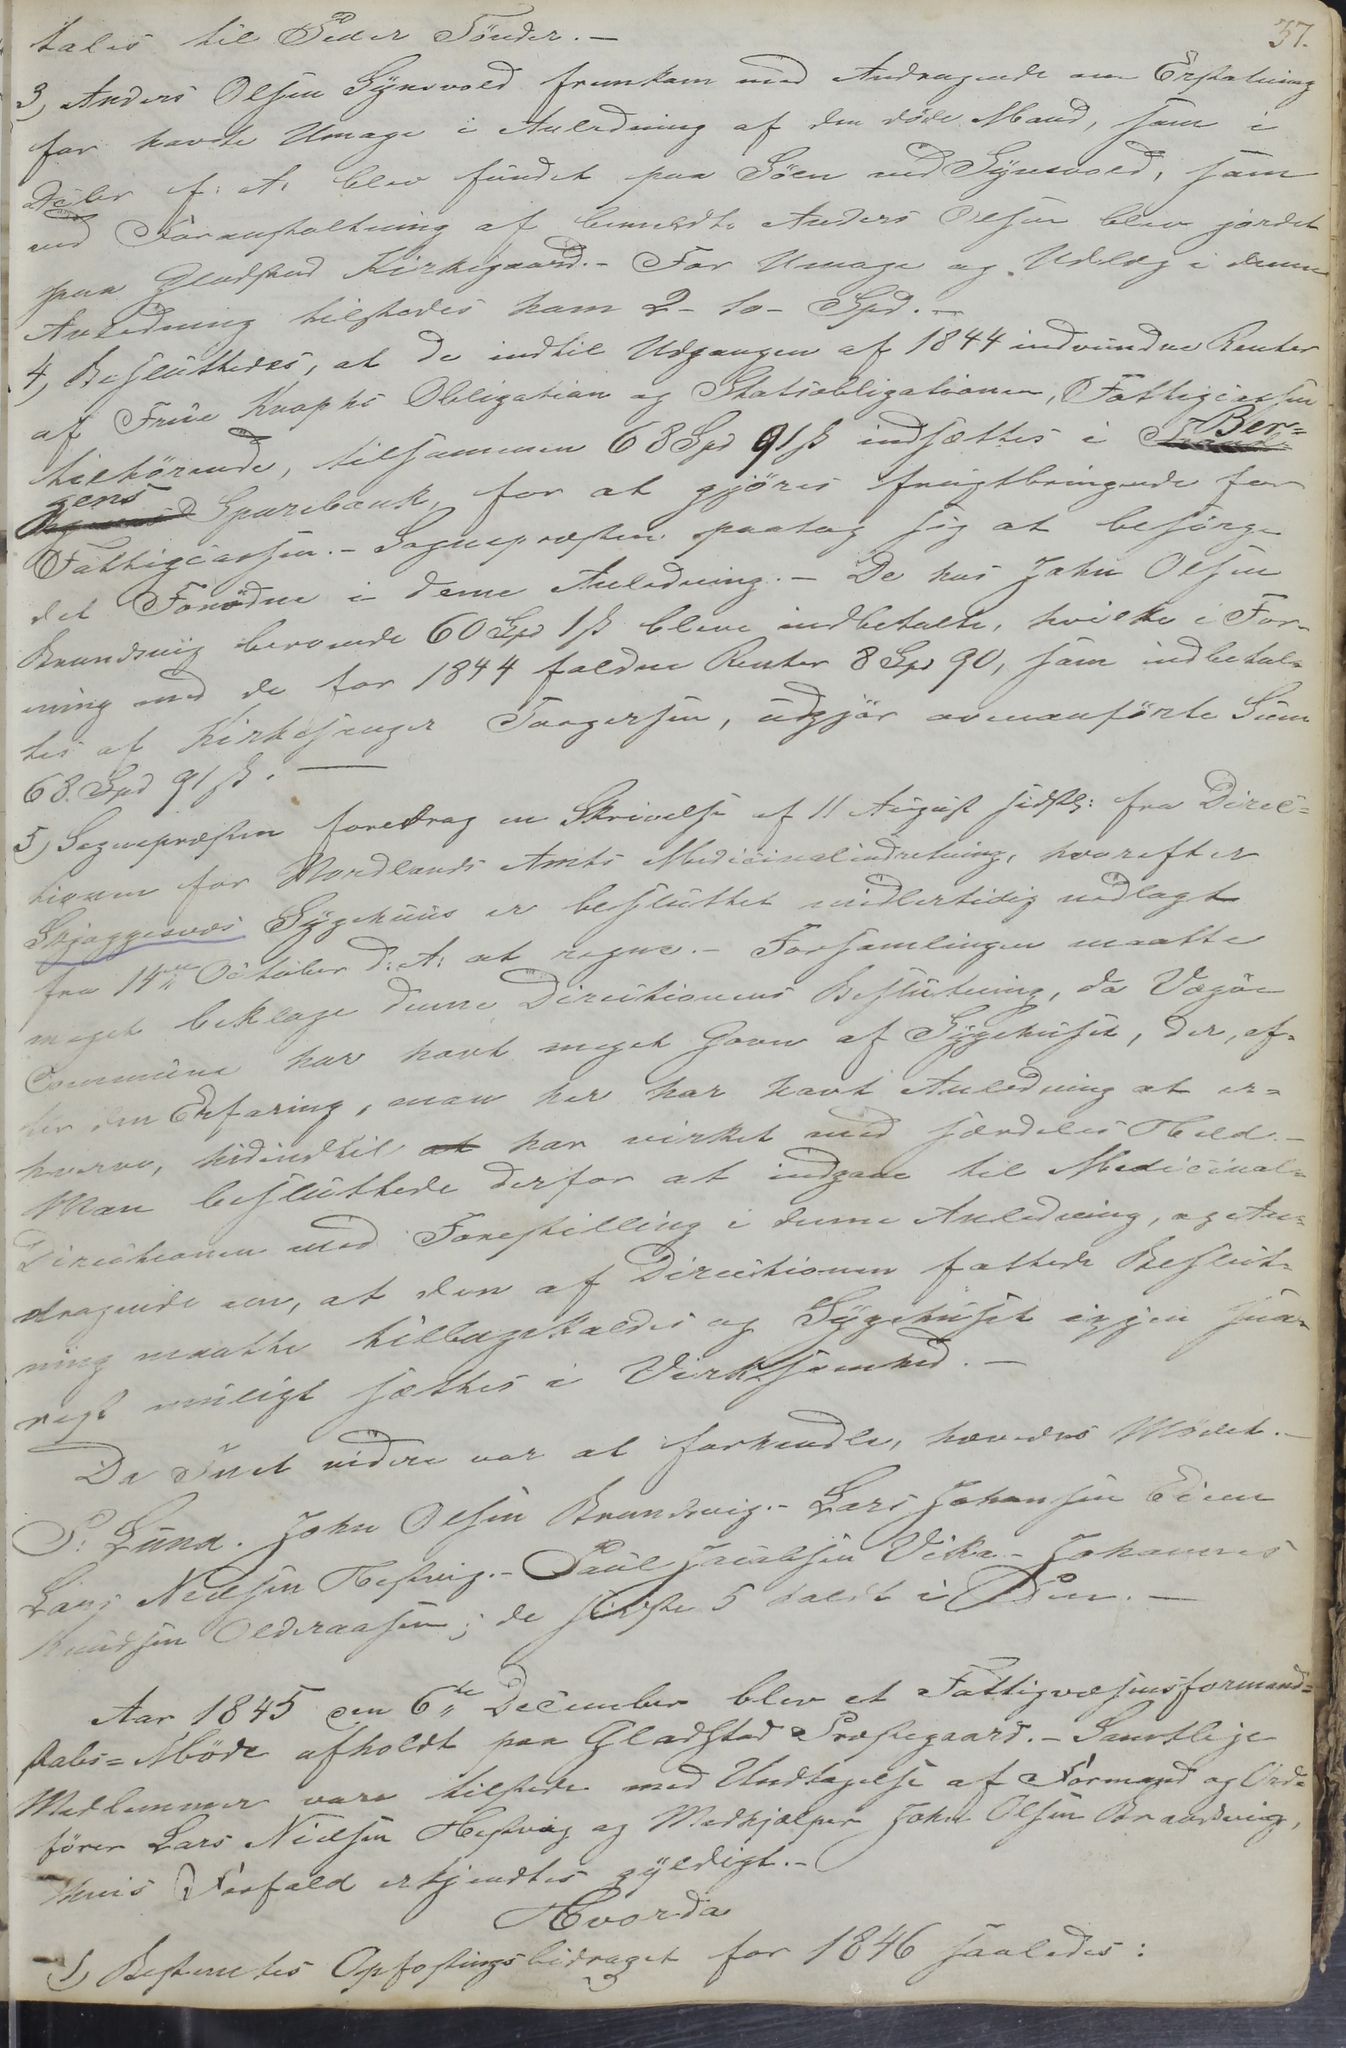 37.
tales til Peder Tönder. —
3, Anders Olsen Sÿnsvold fremkom med Andragende om Erstatning
for havte Umage i Anledning af den döde Mand, som i
Dcbr f: A: blev fundet paa Söen ved Sÿnsvold, som
ved Foranstaltning af bemeldte Anders Olsen blev jordet
paa Gladstad Kirkegaard. – For Umage og Udlæg i denne
Anledning tilstodes ham 2 - 60 - Spd. —
4, Besluttedes, at de indtil Udgangen af 1844 indvundne Renter
af Frue Knophs Obligation og Statsobligationen, Fattigcassen
tilhörende, tilsammen 68 Spd 91 ß indsættes i Ber=
gens Sparebank, for at gjöres frugtbringende for
Fattigcassen. – Sognepræsten paatog sig at besörge
det Fornödne i denne Anledning. – De hos John Olsen
Brandsvig beroende 60 Spd 1 ß bleve indbetalte, hvilke i For-
ening med de for 1844 faldne Renter 8 Spd 90, som indbetal-
tes af Kirkesanger Torgersen, udgjör ovenanförte Sum
68 Spd 91 ß. —
5, Sognepræsten foredrag en Skrivelse af 11 August sidstl: fra Direc=
tionen for Nordlands Amts Medicinalindretning, hvorefter
Skjaggesnæs Sÿgehuus er besluttet midlertidig nedlagt
fra 14de October d: A: at regne. – Forsamlingen maatte
meget beklage denne Directionens Beslutning, da Vegöe
Commune har havt meget Gavn af Sÿgehuset, der, ef-
ter den Erfaring, man her har havt Anledning at er=
hverve, hidindtil at har virket med særdeles Held. –
Man besluttede derfor at indgaae til Medicinal=
Directionen med Forestilling i denne Anledning, og An=
dragende om, at den af Directionen fattede Beslut-
ning maatte tilbagekaldes og Sÿgehuset igjen sna-
rest muligt sættes i Virksomhed. —
Da Intet videre var at forhandle, hævedes Mödet. –
P. Lund. John Olsen Brandsvig. – Lars Johansen Eidem
Lars Nielsen Hestvig. – Paul Jacobsen Vika – Johannes
Knudsen Olderaasen; de sidste 5 holdt i Pen. —
Aar 1845 den 6te December blev et Fattigvæsensformand=
skabs=Möde afholdt paa Gladstad Præstegaard. – Samtlige
Medlemmer vare tilstede med Undtagelse af Formand og Ord-
förer Lars Nielsen Hestvig og Medhjælper John Olsen Brandsvig,
hvis Forfald erkjendtes gÿldigt. –
Hvorda
1, Bestemtes Opfostringsbidraget for 1846 saaledes: